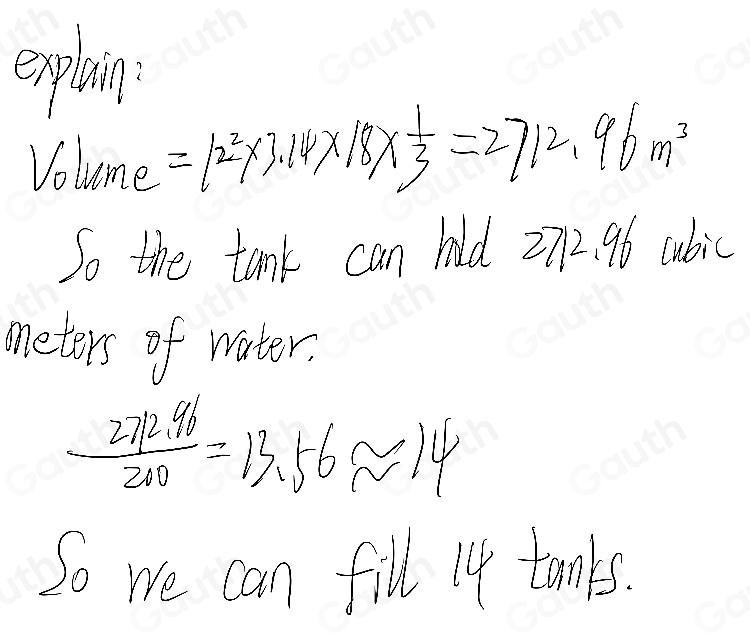 explain:
Volume = 12²×3.14×18×1/3 = 2712.96 m³
So the tank can hold 2712.96 cubic
meters of water.
2712.96/200 = 13.56 ≈ 14
So we can fill 14 tanks.